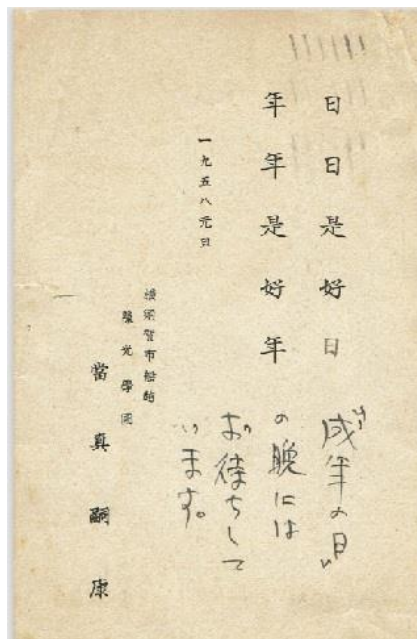 日日是好日
年年是好年
一九五八元旦
横須賀市船越
聾光學園
當真嗣康
“成年の日”
の晩には
お待ちして
います。